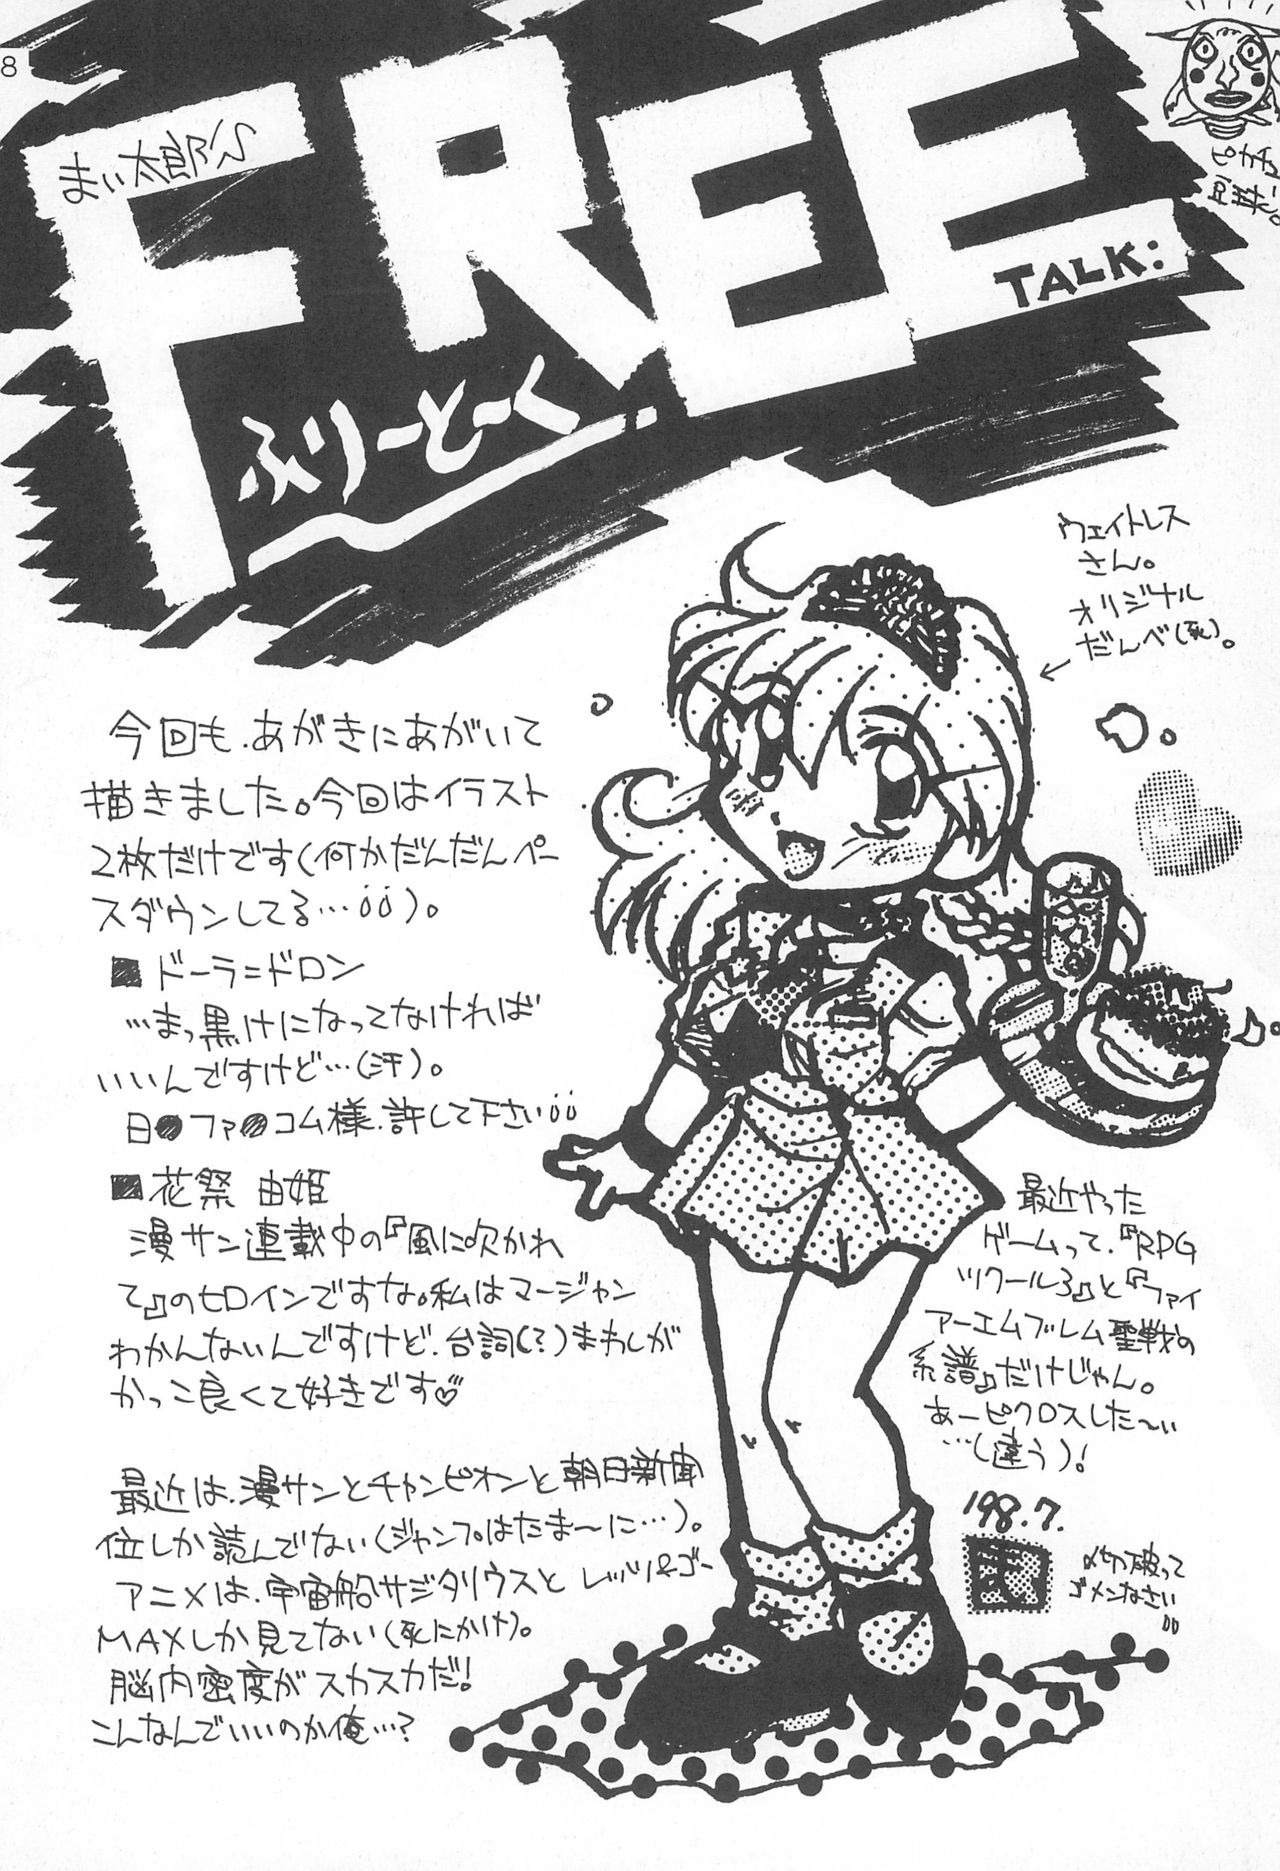 8
まい太郎'S
FREE
TALK:
ふりーとーく
ウェイトレス
さん。
オリジナル
だんべ(死)。
今回も、あがきにあがいて
描きました。今回はイラスト
2枚だけです(何かだんだんペー
スダウンしてる…;;)。
■ドーラ=ドロン
…まっ黒けになってなければ
いいんですけど…(汗)。
日●ファ●コム様、許して下さい;;
■花祭 由姫
漫サン連載中の『風に吹かれ
て』のヒロインですな。私はマージャン
わかんないんですけど、台詞(?)まわしが
かっこ良くて好きです♡
最近は、漫サンとチャンピオンと朝日新聞
位しか読んでない(ジャンプはたま〜に…)。
アニメは、宇宙船サジタリウスとレッツ&ゴー
MAXしか見てない(死にかけ)。
脳内密度がスカスカだ!
こんなんでいいのか俺…?
最近やった
ゲームって、『RPG
ツクール3』と『ファイ
アーエムブレム聖戦の
系譜』だけじゃん。
あーピクロスした〜い
…(違う)!
'98.7.
〆切破って
ゴメンなさい
;;